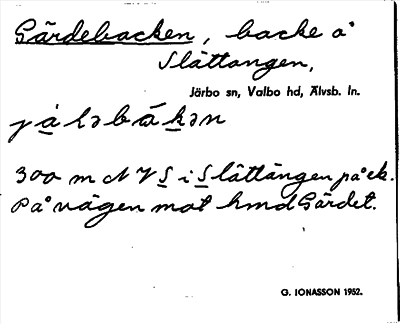 Gärdebacken, backe å
Slättängen,
Järbo sn, Valbo hd, Älvsb. ln.
jä̀ləbákən
300 m NV S i Slättängen på ek.
På vägen mot hmd Gärdet.
G. IONASSON 1952.